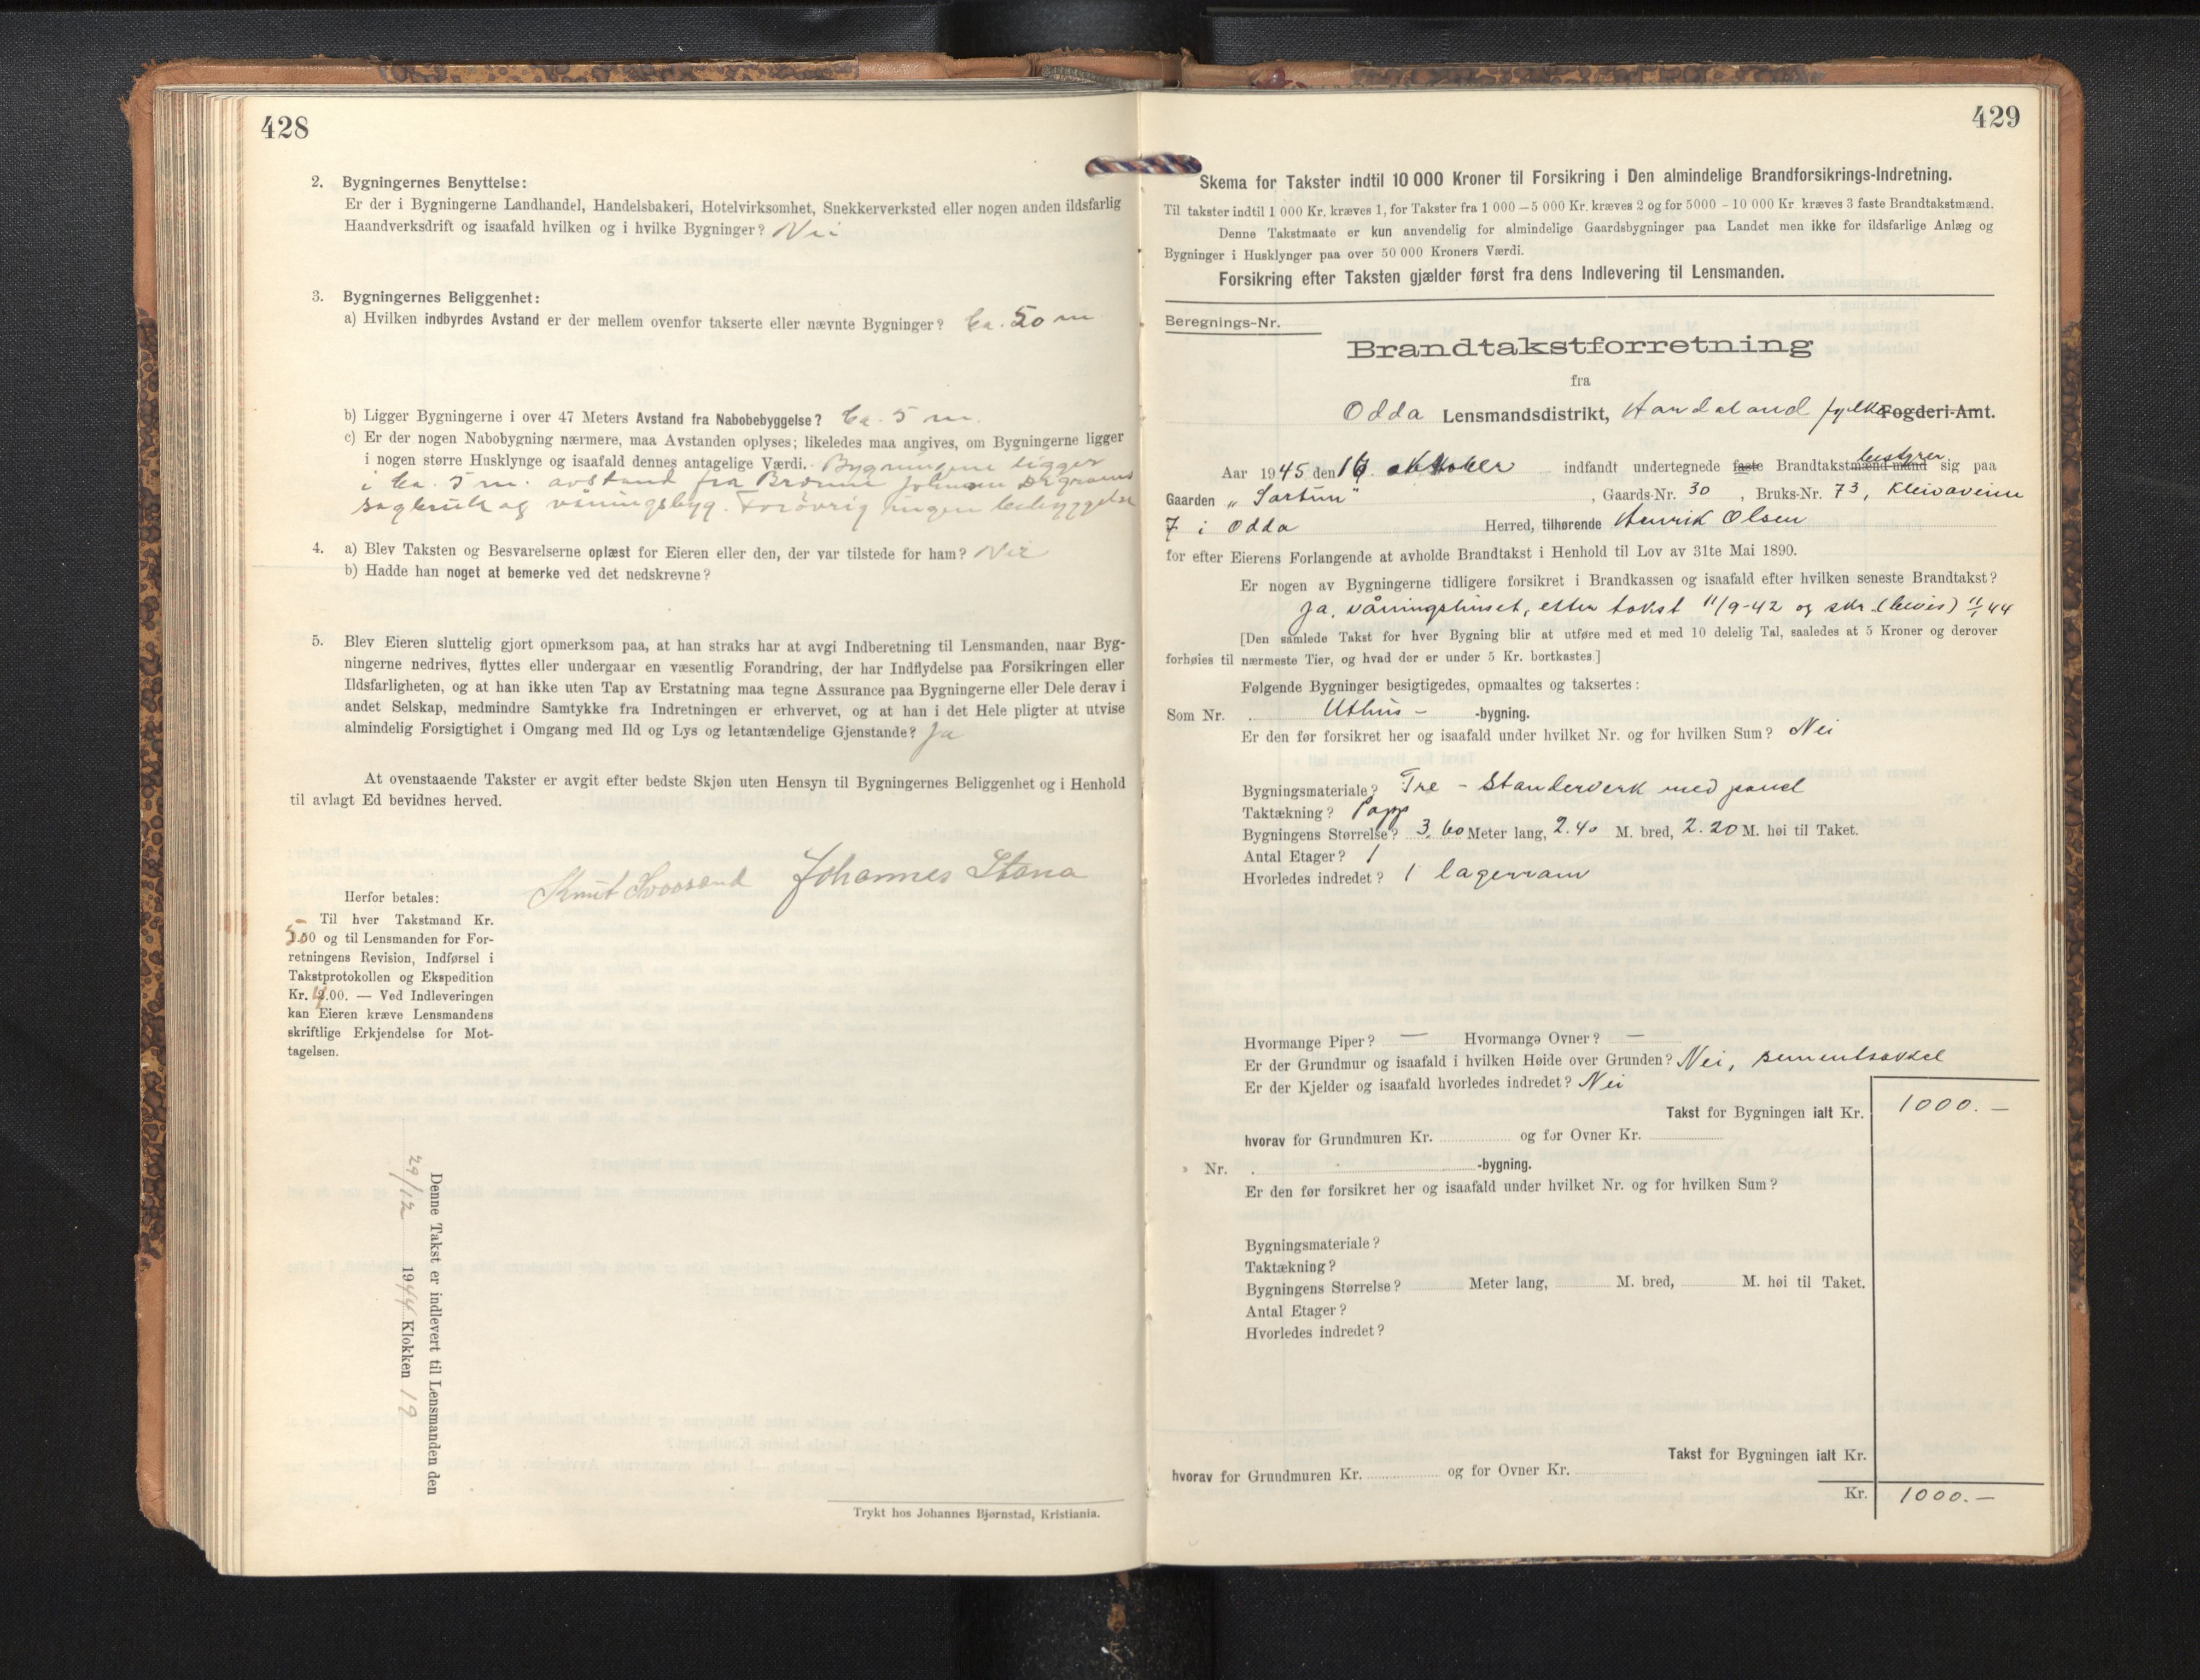 428
2. Bygningernes Benyttelse:
Er der i Bygningerne Landhandel, Handelsbakeri, Hotelvirksomhet, Snekkerverksted eller nogen anden ildsfarlig
Haandverksdrift og isaafald hvilken og i hvilke Bygninger? Nei
3. Bygningernes Beliggenhet:
a) Hvilken indbyrdes Avstand er der mellem ovenfor takserte eller nævnte Bygninger? Ca. 50 m
b) Ligger Bygningerne i over 47 Meters Avstand fra Nabobebyggelse? Ca. 5 m.
c) Er der nogen Nabobygning nærmere, maa Avstanden oplyses; likeledes maa angives, om Bygningerne ligger
i nogen større Husklynge og isaafald dennes antagelige Værdi. Bygningene ligger
i ca. 5 m. avstand fra Johnsen
sagbruk og våningsbyg. Forøvrig ingen bebyggelse
4. a) Blev Taksten og Besvarelserne oplæst for Eieren eller den, der var tilstede for ham? Nei
b) Hadde han noget at bemerke ved det nedskrevne?
5. Blev Eieren sluttelig gjort opmerksom paa, at han straks har at avgi Indberetning til Lensmanden, naar Byg-
ningerne nedrives, flyttes eller undergaar en væsentlig Forandring, der har Indflydelse paa Forsikringen eller
Ildsfarligheten, og at han ikke uten Tap av Erstatning maa tegne Assurance paa Bygningerne eller Dele derav i
andet Selskap, medmindre Samtykke fra Indretningen er erhvervet, og at han i det Hele pligter at utvise
almindelig Forsigtighet i Omgang med Ild og Lys og letantændelige Gjenstande? Ja
At ovenstaaende Takster er avgit efter bedste Skjøn uten Hensyn til Bygningernes Beliggenhet og i Henhold
til avlagt Ed bevidnes herved.
Knut Johannes Stana
Herfor betales:
Til hver Takstmand Kr.
5.00 og til Lensmanden for For-
retningens Revision, Indførsel i
Takstprotokollen og Ekspedition
Kr. 4.00. — Ved Indleveringen
kan Eieren kræve Lensmandens
skriftlige Erkjendelse for Mot-
tagelsen.
Denne Takst er indlevert til Lensmanden den
29/12 1944 Klokken 19
Trykt hos Johannes Bjørnstad, Kristiania.
429
Skema for Takster indtil 10 000 Kroner til Forsikring i Den almindelige Brandforsikrings-Indretning.
Til takster indtil 1 000 Kr. kræves 1, for Takster fra 1 000 – 5 000 Kr. kræves 2 og for 5000 – 10 000 Kr. kræves 3 faste Brandtakstmænd.
Denne Takstmaate er kun anvendelig for almindelige Gaardsbygninger paa Landet men ikke for ildsfarlige Anlæg og
Bygninger i Husklynger paa over 50 000 Kroners Værdi.
Forsikring efter Taksten gjælder først fra dens Indlevering til Lensmanden.
Beregnings-Nr.
Brandtakstforretning
fra
Odda Lensmandsdistrikt, Hordaland fylke Fogderi-Amt.
Aar 1945 den 16. oktober indfandt undertegnede faste Brandtakstmænd mand bestyrer sig paa
Gaarden „Sørtun" , Gaards-Nr. 30 , Bruks-Nr. 73, Kleivaveien
7 i Odda Herred, tilhørende Henrik Olsen
for efter Eierens Forlangende at avholde Brandtakst i Henhold til Lov av 31te Mai 1890.
Er nogen av Bygningerne tidligere forsikret i Brandkassen og isaafald efter hvilken seneste Brandtakst?
Ja, våningshuset, etter takst 11/9-42 og skr. (bevis) 11/1 44
[Den samlede Takst for hver Bygning blir at utføre med et med 10 delelig Tal, saaledes at 5 Kroner og derover
forhøies til nærmeste Tier, og hvad der er under 5 Kr. bortkastes.]
Følgende Bygninger besigtigedes, opmaaltes og taksertes:
Som Nr. . Uthus - -bygning.
Er den før forsikret her og isaafald under hvilket Nr. og for hvilken Sum? Nei
Bygningsmateriale? Tre - standerverk med panel
Taktækning? Papp
Bygningens Størrelse? 3,60 Meter lang, 2.40 M. bred, 2.20 M. høi til Taket.
Antal Etager? 1
Hvorledes indredet? 1 lagerrom
Hvormange Piper? — Hvormange Ovner? —
Er der Grundmur og isaafald i hvilken Høide over Grunden? Nei, sementsokkel
Er der Kjelder og isaafald hvorledes indredet? Nei
Takst for Bygningen ialt Kr. 1000.-
hvorav for Grundmuren Kr. og for Ovner Kr.
» Nr. . -bygning.
Er den før forsikret her og isaafald under hvilket Nr. og for hvilken Sum?
Bygningsmateriale?
Taktækning?
Bygningens Størrelse? Meter lang, M. bred, M. høi til Taket.
Antal Etager?
Hvorledes indredet?
Takst for Bygningen ialt Kr.
hvorav for Grundmuren Kr. og for Ovner Kr.
Kr. 1000.-